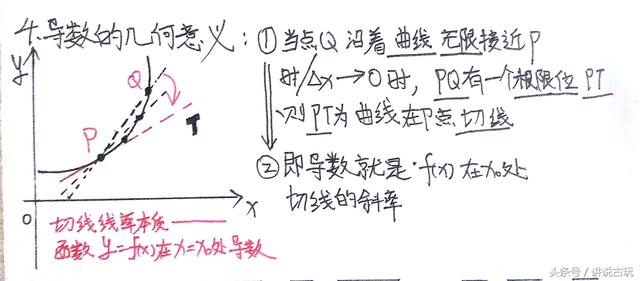 4.导数的几何意义：①当点Q沿着曲线无限接近P
时/△x→0时，PQ有一个极限位PT
则PT为曲线在P点切线
②即导数就是f(x)在x₀处
切线的斜率
y
Q
P
T
O
x
切线线率本质——
函数y=f(x)在x=x₀处导数
头条号/讲说古玩